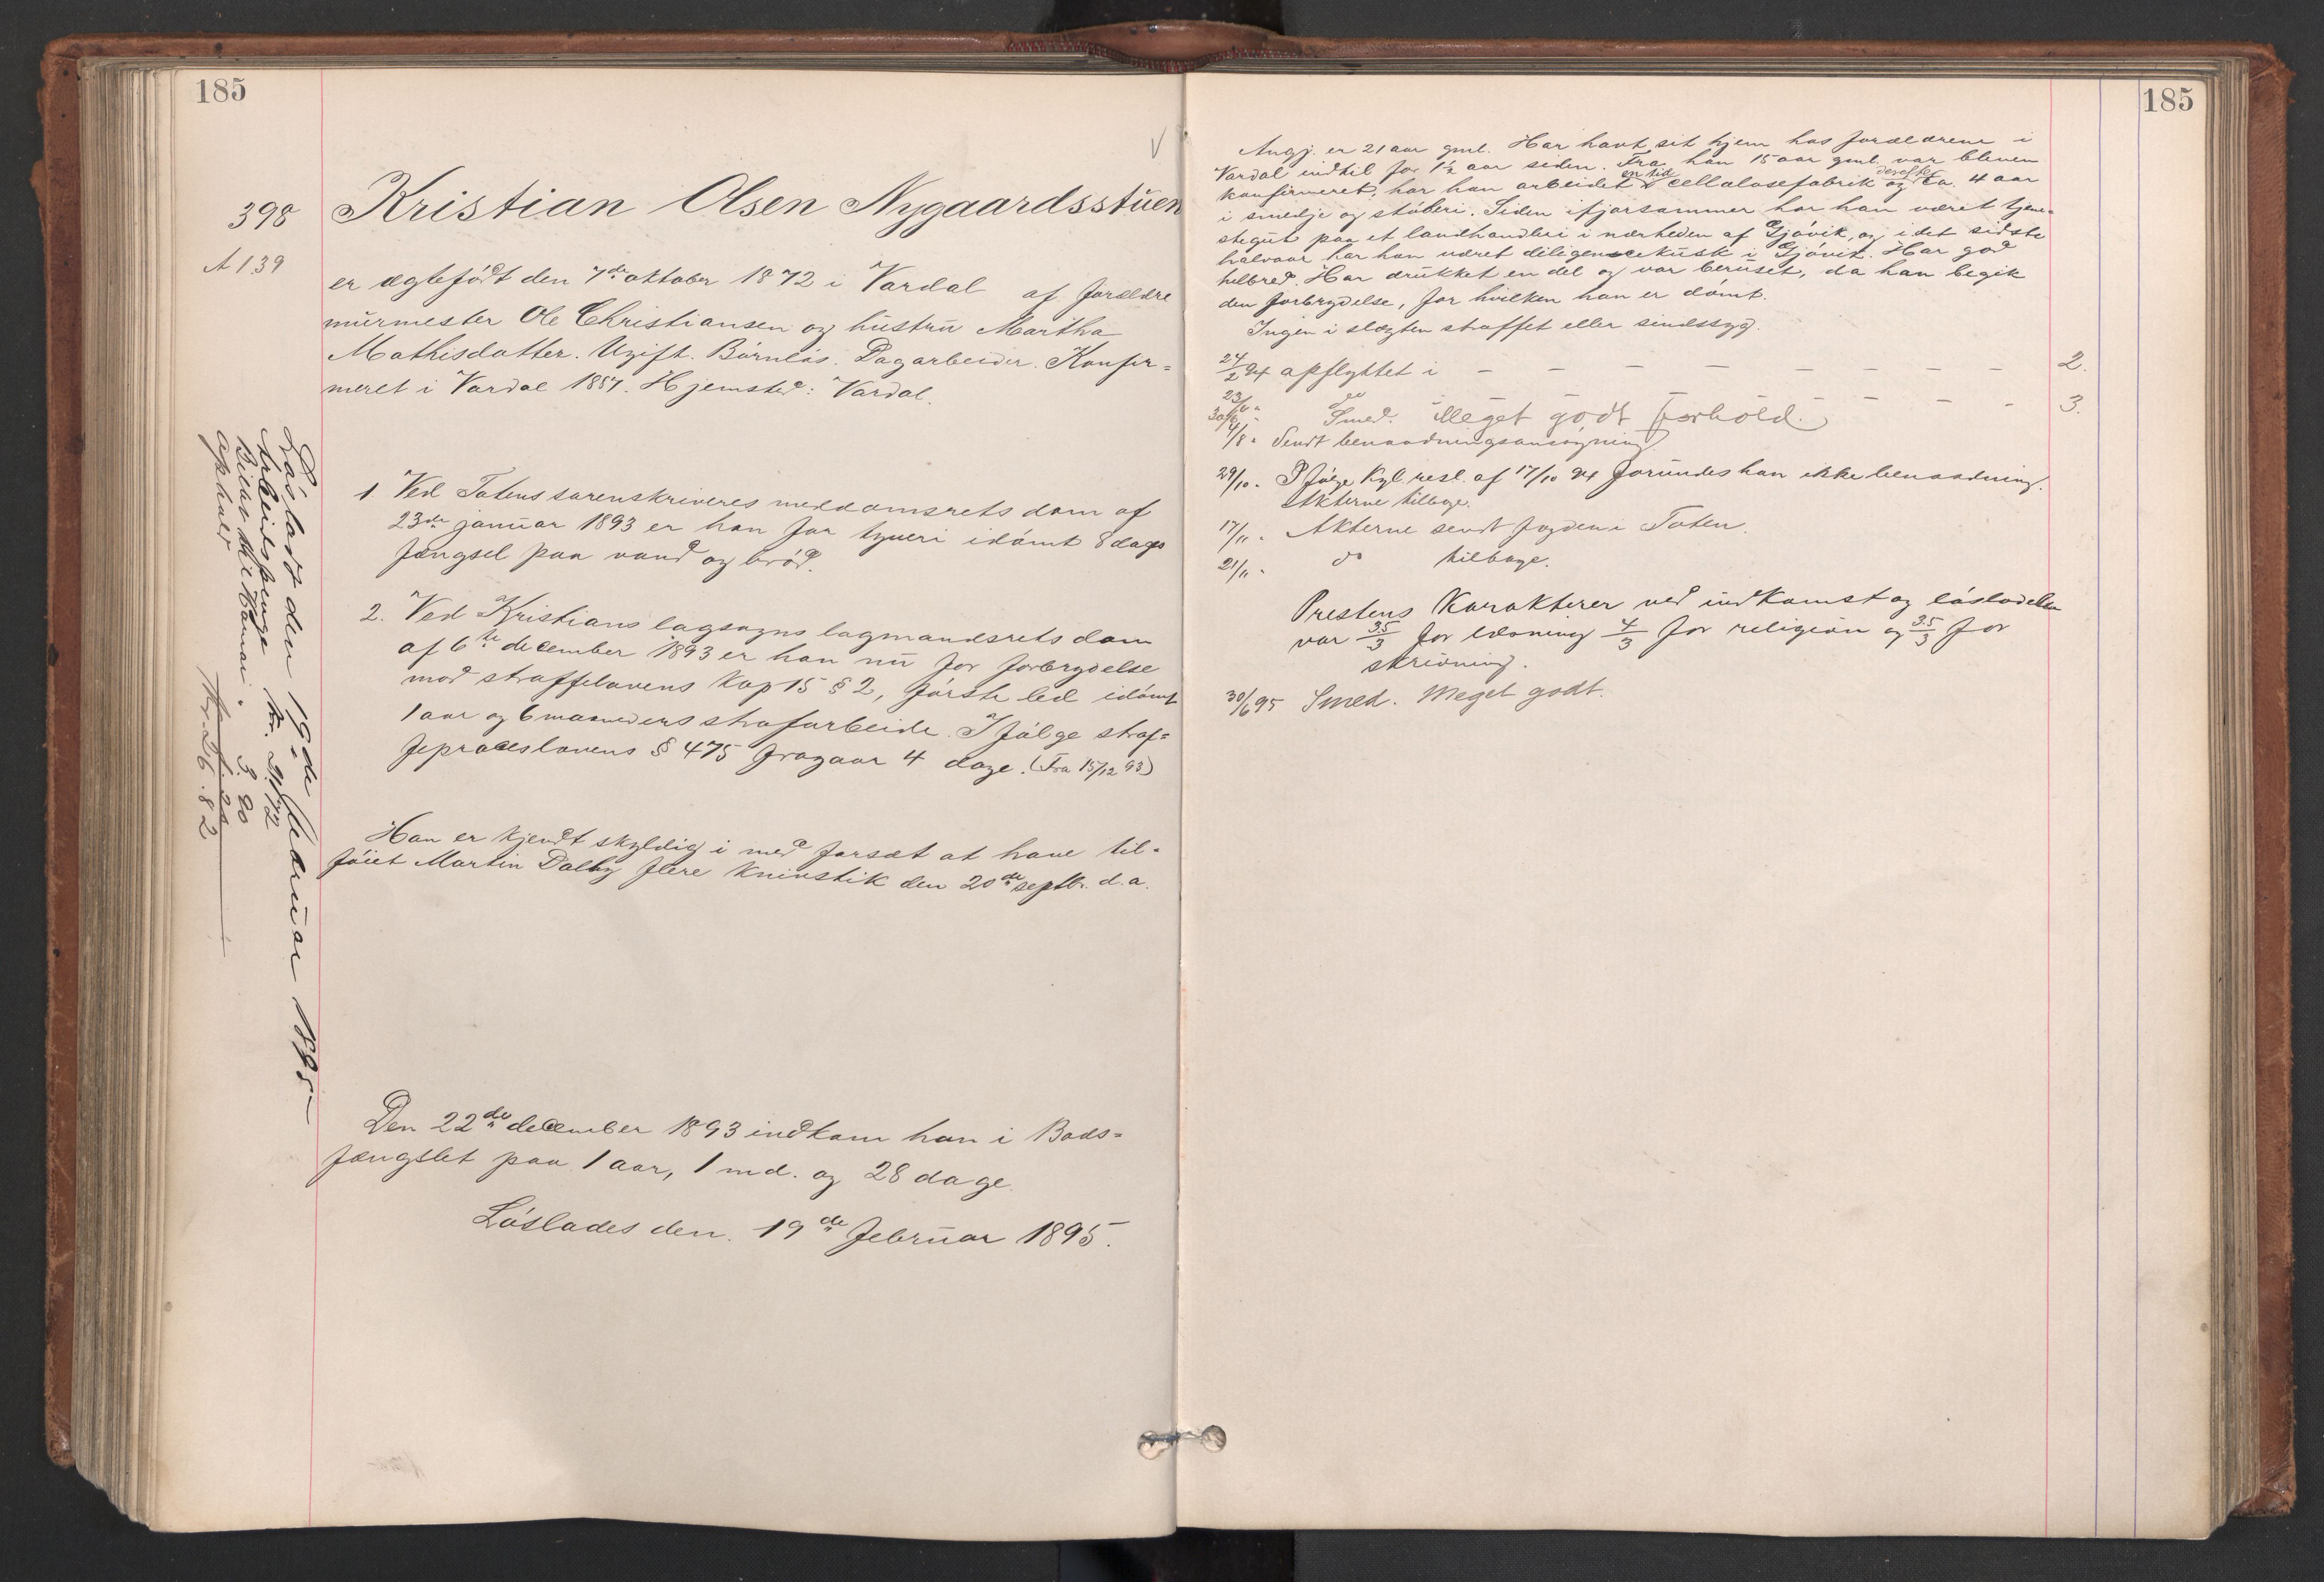 185
398
A 139
Kristian Olsen Nygaardsstuen
er ægtefødt den 7de oktober 1872 i Vardal af forældre
murmester Ole Christiansen og hustru Martha
Mathisdatter. Ugift. Børnløs. Dagarbeider. Konfir=
meret i Vardal 1887. Hjemsted: Vardal.
1 Ved Totens sorenskriveres meddomsrets dom af
23de januar 1893 er han for tyveri idømt 8 dages
fængsel paa vand og brød.
2. Ved Kristians lagsogns lagmandsrets dom
af 6te december 1893 er han nu for forbrydelse
mod straffelovens Kap 15 § 2, første led idømt
1 aar og 6 maaneders strafarbeide. Ifølge straf=
feproceslovens § 475 fragaar 4 dage. (Fra 15/12 93)
Han er kjendt skyldig i med forsæt at have til=
føiet Martin Dalby flere knivstik den 20de septbr. d.a.
Den 22de december 1893 indkom han i Bods=
fængslet paa 1 aar, 1 md. og 28 dage.
Løslades den 19de februar 1895.
Løsladt den 19de februar 1895
Arbeidspenge Kr. 21.72
Billet til Hamar " 3.20
ophold
Kr. 26.82
185
Angj. er 21 aar gml. Har havt sit hjem hos forældrene i
Vardal indtil for 1½ aar siden. Fra han 15 aar gml. var bleven
konfirmeret, har han arbeidet en tid i cellulosefabrik og derefter ca. 4 aar
i smedje og støberi. Siden ifjorsommer har han været tjene=
stegut paa et landhandleri i nærheden af Gjøvik, og i det sidste
halvaar har han været diligencekusk i Gjøvik. Har god
helbred. Har drukket en del og var beruset, da han begik
den forbrydelse, for hvilken han er dømt.
Ingen i slægten straffet eller sindssyg.
24/2 94 opflyttet i - - - - - - - 2.
23/6 " do - - - - 3.
30/6 " Smed. Meget godt forhold.
4/8 " Sendt benaadningsansøgning
29/10 " Ifølge Kgl. resl. af 17/10 94 forundes han ikke benaadning.
Akterne tilbage.
17/11 " Akterne sendt fogden i Toten.
21/11 " do tilbage.
Prestens Karakterer ved indkomst og løsladelse
var 3.5/3 for læsning 4/3 for religion og 3.5/3 for
skrivning.
30/6 95 Smed. Meget godt.